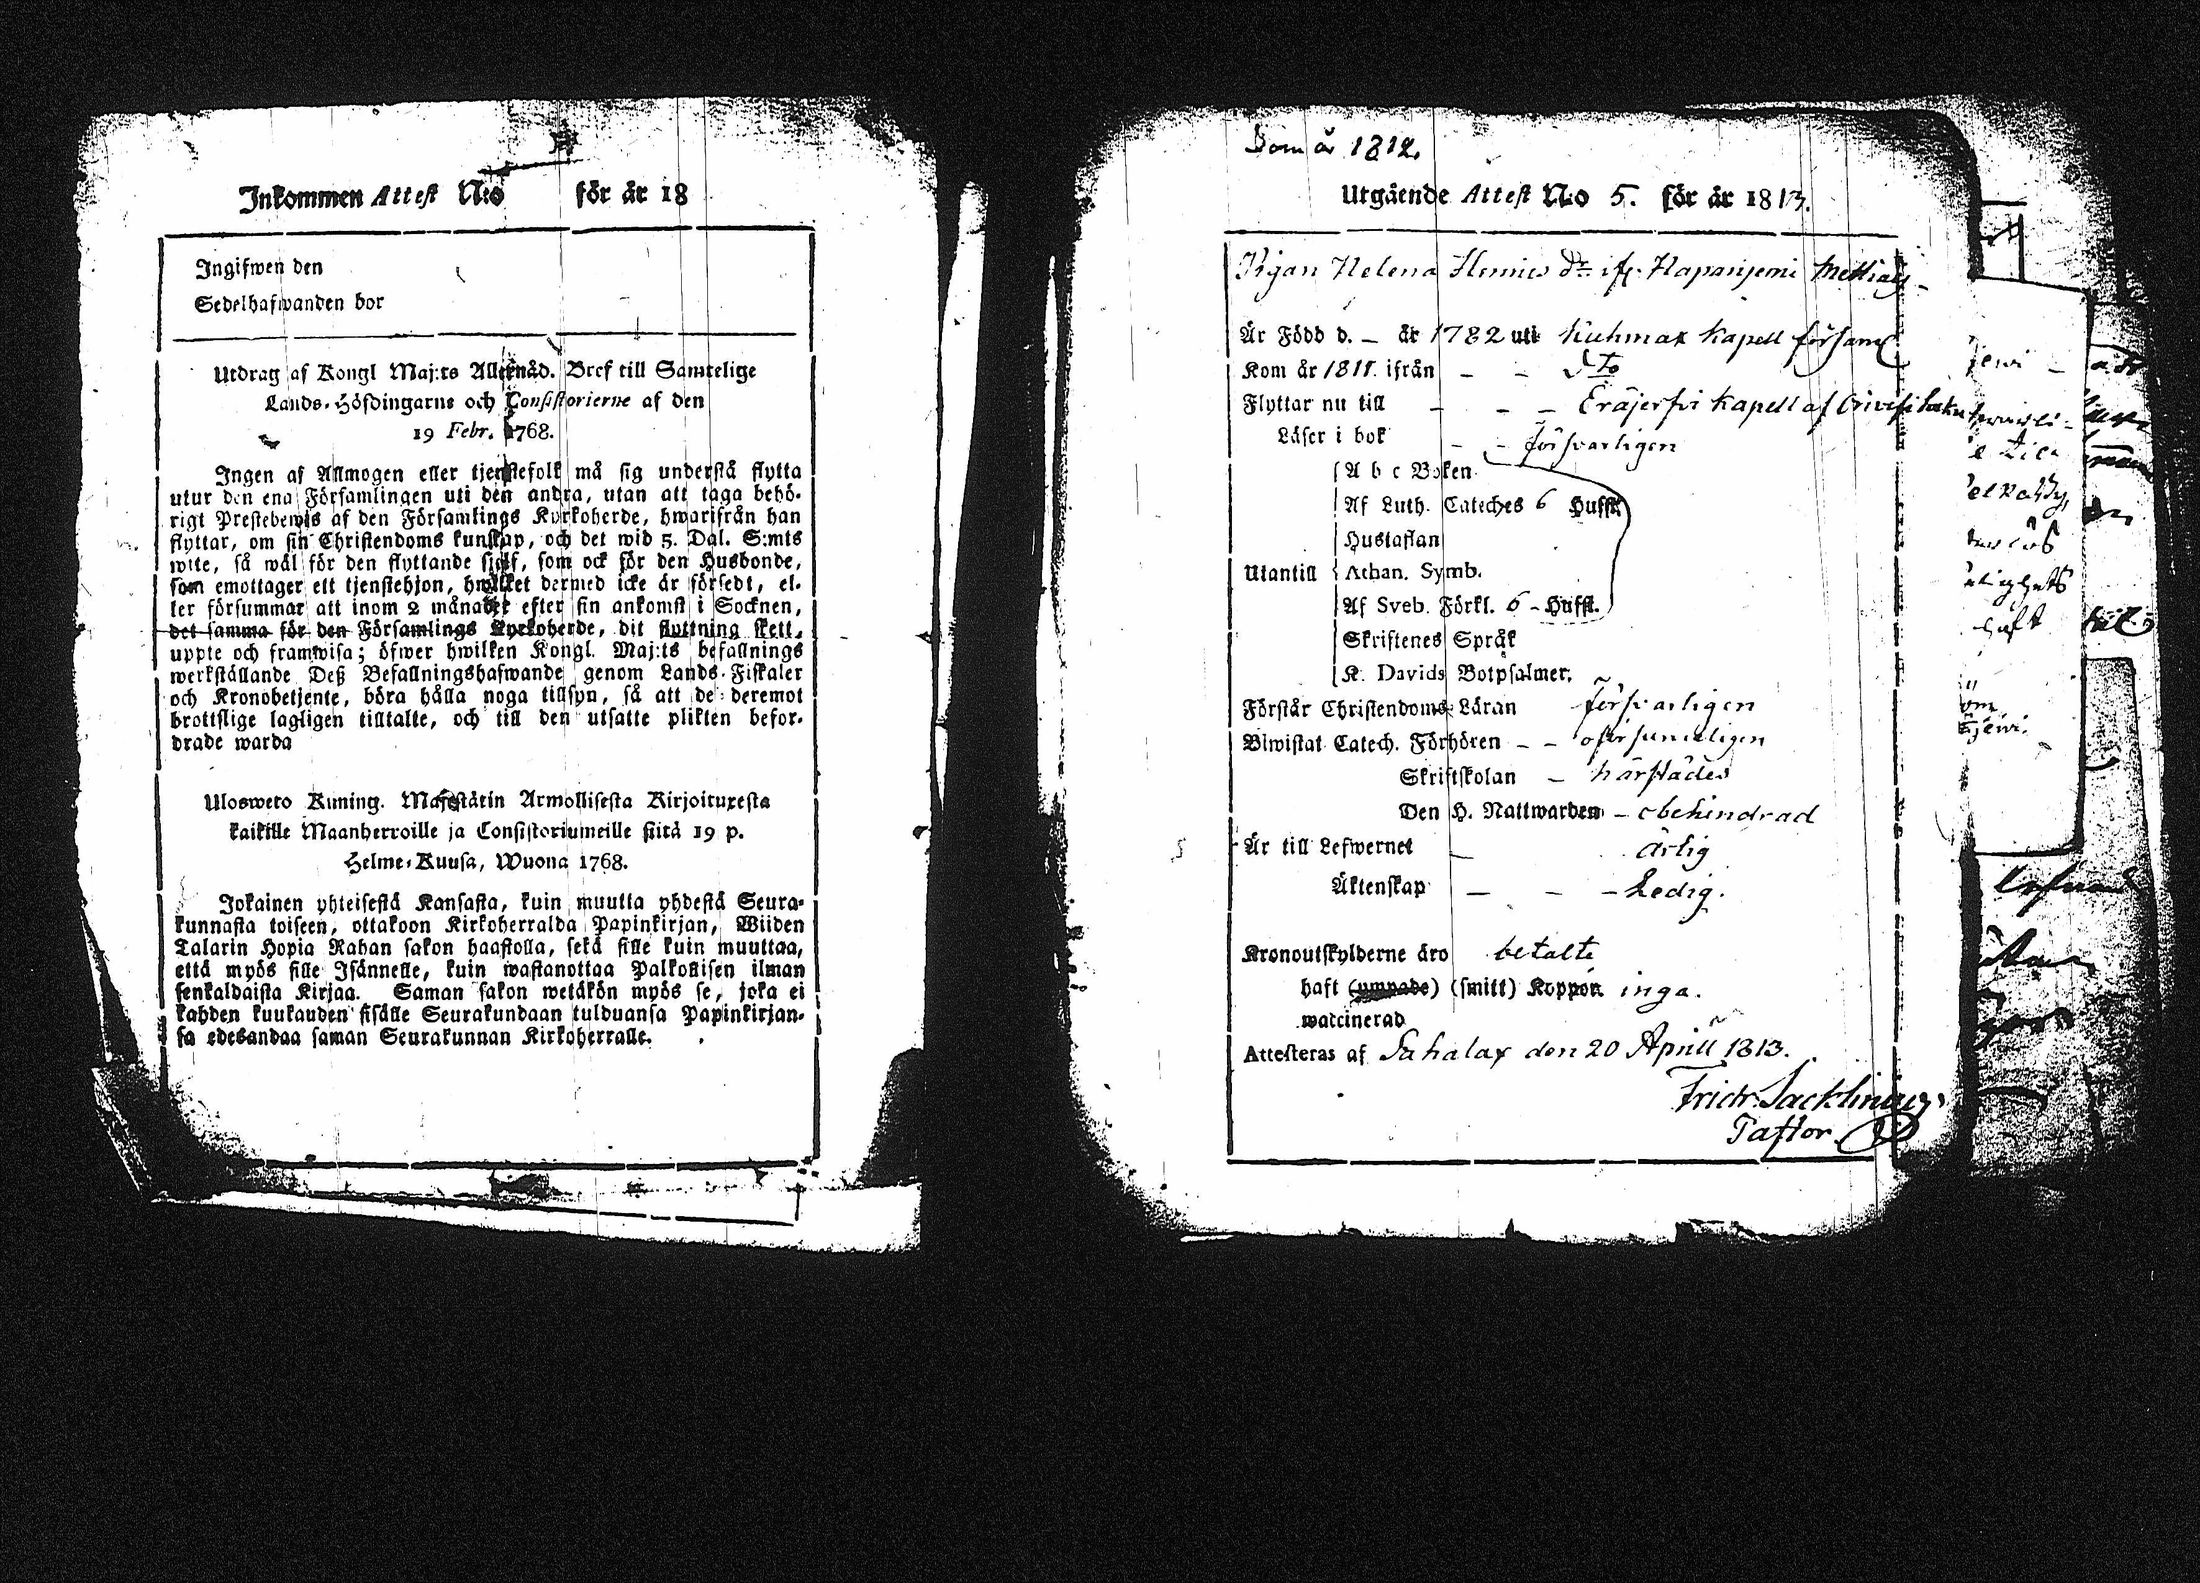 Inkommen Attest N:o för år 18
Ingifwen den
Sedelhafwanden bor
Utdrag af Kongl Maj:ts Allernåd. Bref till Samtelige
Lands-Höfdingarne och Consistorierne af den
19 Febr. 1768.
Ingen af Allmogen eller tjenstefolk må sig understå flytta
utur den ena Församlingen uti den andra, utan att taga behö-
rigt Prestebewis af den Församlings Kyrkoherde, hwarifrån han
flyttar, om sin Christendoms kunskap, och det wid 5. Dal. S:mts
wite, så wäl för den flyttande sjelf, som ock för den Husbonde,
som emottager ett tjenstehjon, hwilket dermed icke är försedt, el-
ler försummar att inom 2 månader efter sin ankomst i Socknen,
det samma för den Församlings Kyrkoherde, dit flyttning skett,
uppte och framwisa; öfwer hwilken Kongl. Maj:ts befallnings
werkställande Deß Befallningshafwande genom Lands-Fiskaler
och Kronobetjente, böra hålla noga tillsyn, så att de deremot
brottslige lagligen tilltalte, och till den utsatte plikten befor-
drade warda
Ulosweto Kuning. Majestätin Armollisesta Kirjoituxesta
kaikille Maanherroille ja Consistoriumeille siitä 19 p.
Helme-Kuusa, Wuona 1768.
Jokainen yhteisestä Kansasta, kuin muutta yhdestä Seura-
kunnasta toiseen, ottakoon Kirkoherralda Papinkirjan, Wiiden
Talarin Hopia Rahan sakon haastolla, sekä sille kuin muuttaa,
että myös sille Isännelle, kuin wastanottaa Palkollisen ilman
senkaldaista Kirjaa. Saman sakon wetäkön myös se, joka ei
kahden kuukauden sisälle Seurakundaan tulduansa Papinkirjan-
sa edesandaa saman Seurakunnan Kirkoherralle.
Som år 1812.
Utgående Attest N:o 5. för år 1813.
Pigan Helena ifr. Hapaniemi
Är Född d. - år 1782 uti Kuhmax Kapell församl
Kom år 1811. ifrån - - Dto
Flyttar nu till - - - Eräjerfvi Kapell af
Läser i bok - - försvarligen
A b c Boken
Af Luth. Cateches 6 Huffst.
Hustaflan
Utantill Athan. Symb.
Af Sveb. Förkl. 6 - Huffst.
Skriftenes Språk
K. Davids Botpsalmer.
Förstår Christendoms Läran försvarligen
Biwistat Catech. Förhören - - oförsumeligen
Skriftskolan - härstädes
Den H. Nattwarden - obehindrad
Är till Lefwernet - ärlig
Äktenskap - - - Ledig.
Kronoutskylderne äro betalte
haft (ympade) (smitt) Koppor inga.
waccinerad
Attesteras af Sahalax den 20 Aprill 1813.
Pastor.